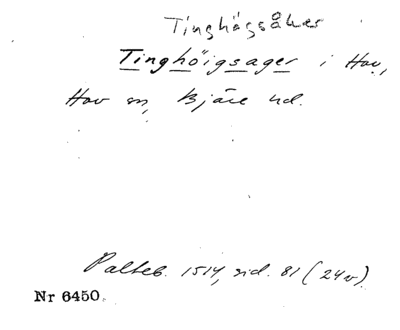 Tinghögsåker
Tinghöigsager i Hov,
Hov sn, Bjäre hd.
Palteb. 1514, sid. 81 (24v).
Nr 6450.